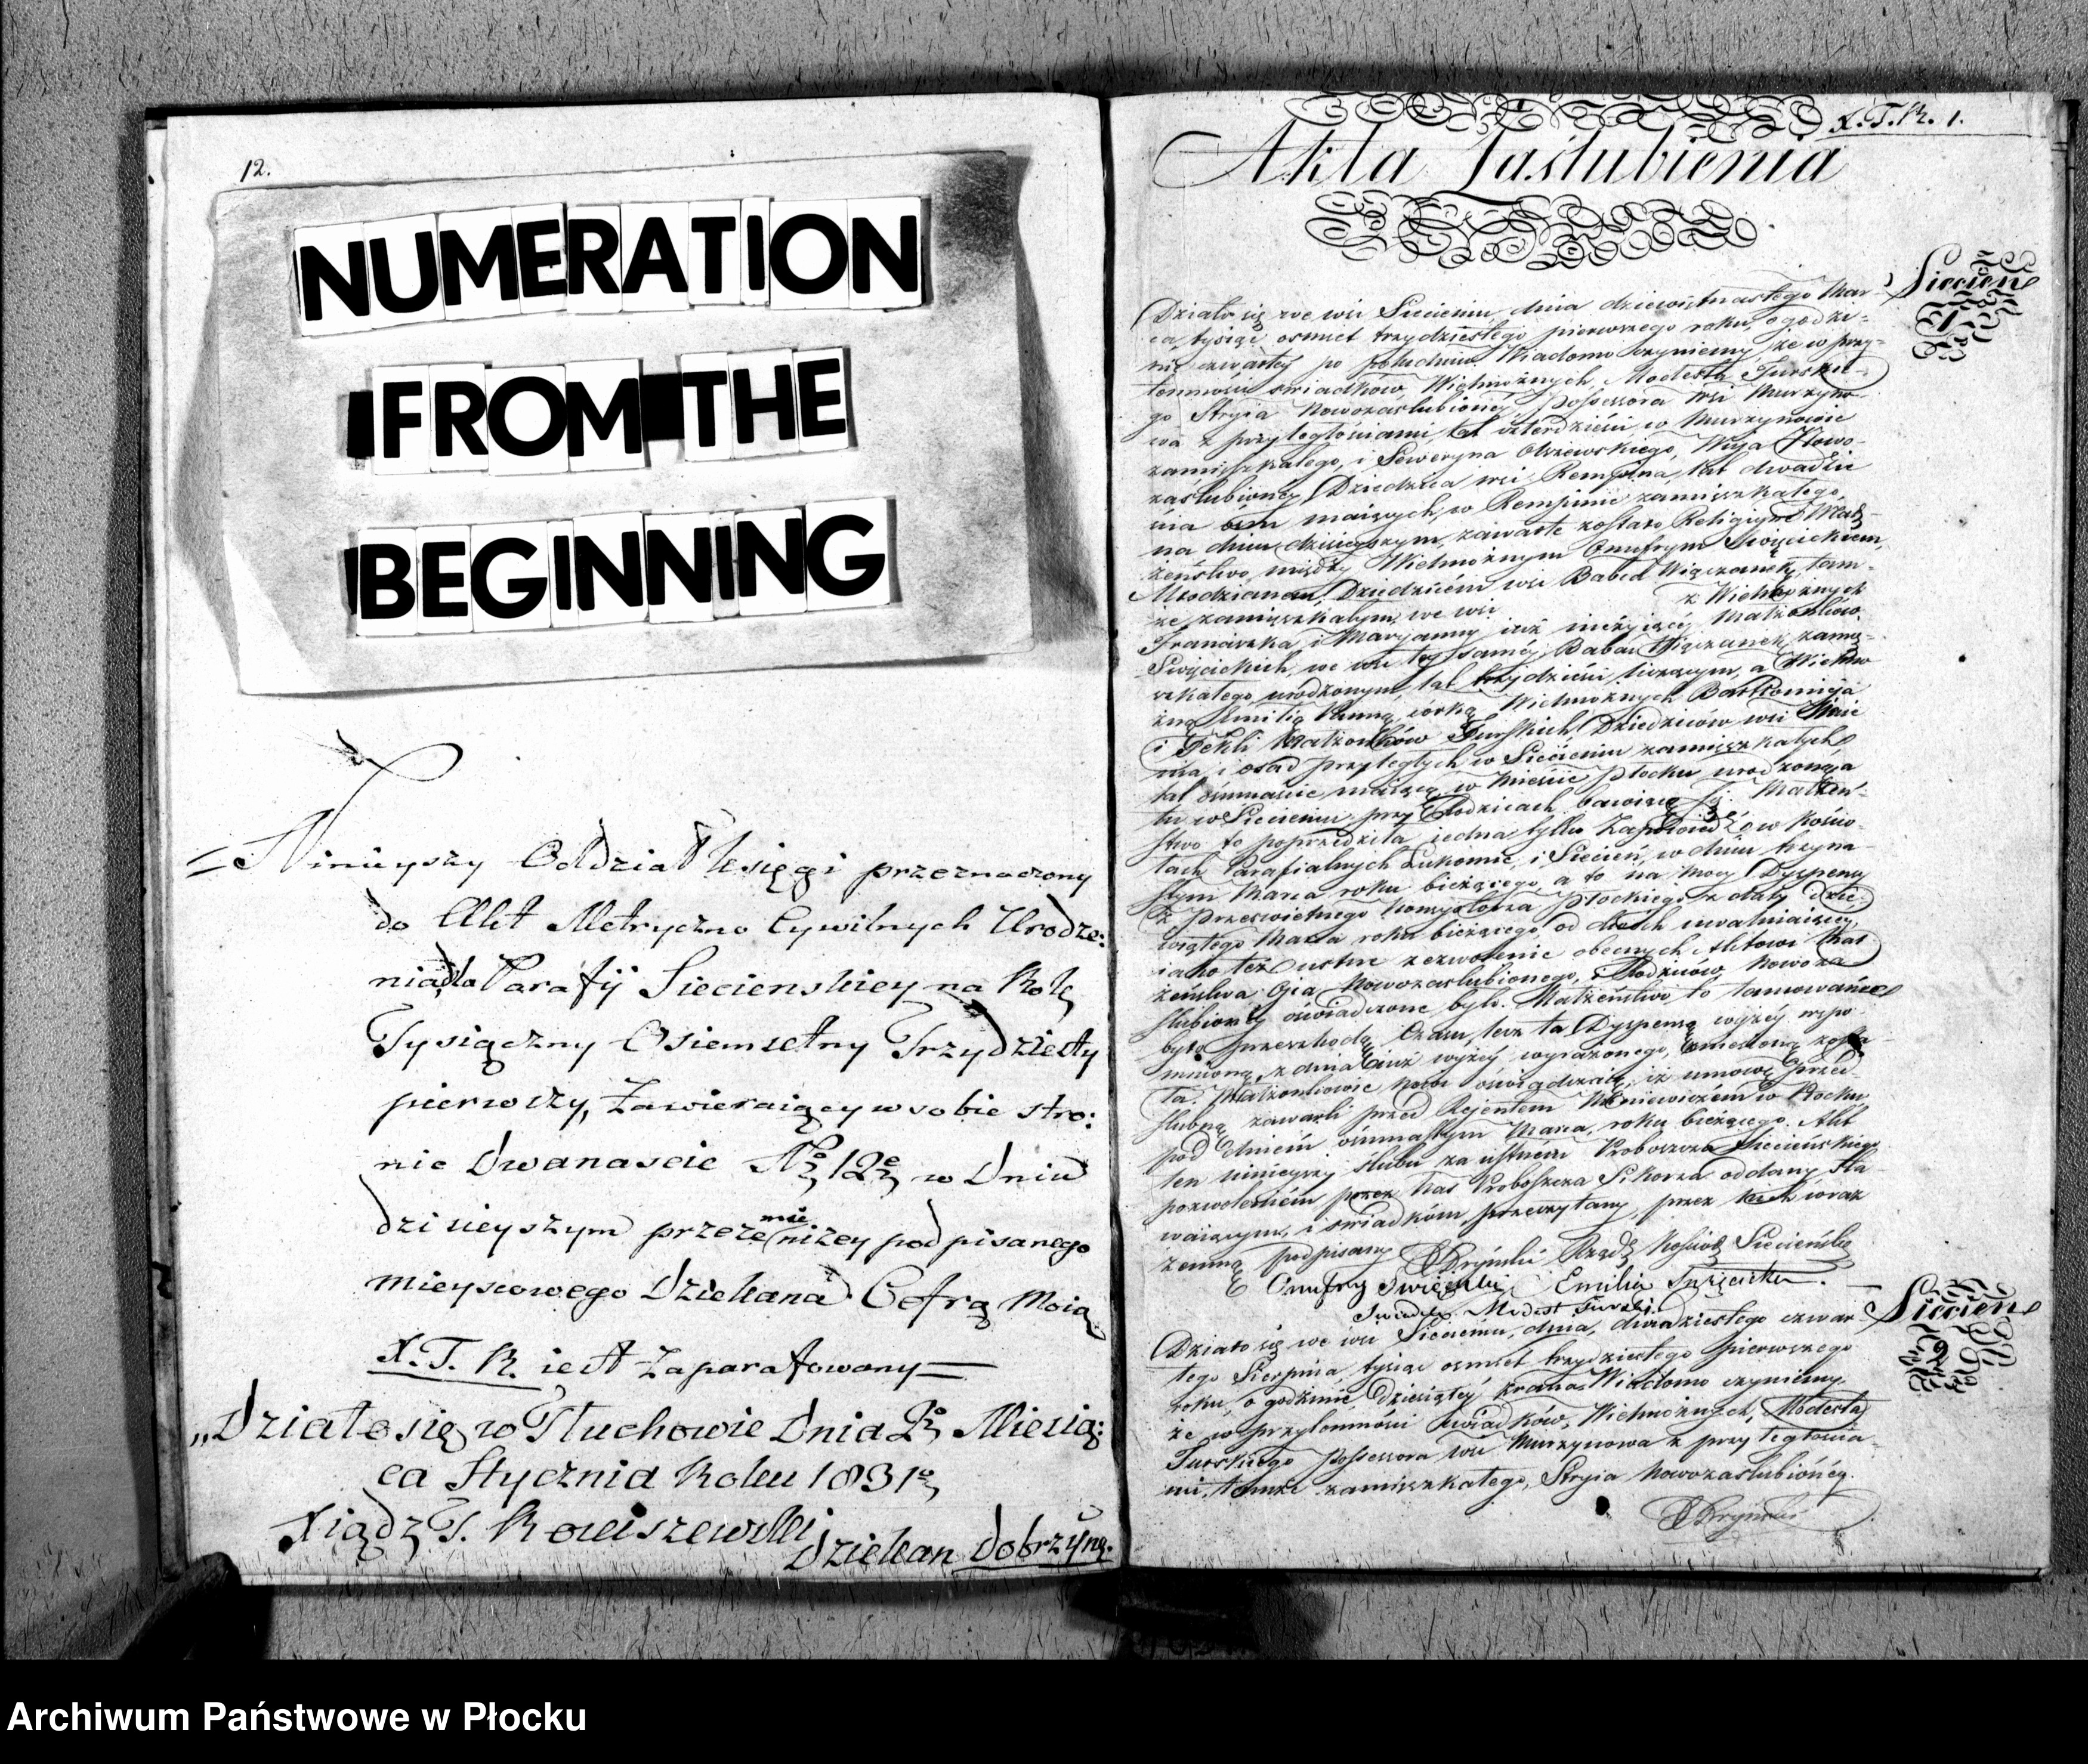 12.
NUMERATION
FROM THE
BEGINNING
Ninieyszy Oddział Xsięgi przeznaczony
do Akt Metryczno Cywilnych Urodze:
nia dla Parafij Siecienskiey na Rok
Tysiączny Osiemsetny Trzydziesty
pierwszy, Zawieraiący w sobie stro:
nic Dwanascie No 12 w Dniu
dzisieyszym przezemnie niżey podpisanego
mieyscowego Dziekana Cofrą Moią
X. T. R. iest Zaparafowany
„Działo się w Tłuchowie Dnia 2 Miesią:
ca Stycznia Roku 1831o
Xiądz T. Rociszewski Dziekan Dobrzyńs.
X. T. R. 1.
Akta Zaślubienia
Siecień
1
Działo się we wsi Siecieniu, dnia dziewiętnastego Mar-
ca, tysiąc osmset trzydziestego pierwszego roku, ogodzi-
nie czwartej po południu. Wiadomo czyniemy, że w przy-
tomności świadków, Wielmożnych, Modesta Turskie-
go Stryia Nowozaslubionej, Possessora wsi Murzyno-
wa z przyległościami, lat czterdzieści w Murzynowie
zamieszkałego, i Seweryna Olszewskiego, Wuja Nowo-
zaślubionej, Dziedzica wsi Rempina, lat dwadzie-
ścia ośm maiących, w Rempinie zamieszkałego,
na dniu dzisiejszym, zawarte zostało Religijne Mał-
żeństwo, między Wielmożnym Onufrym Swięcickiem,
Młodzianem, Dziedzicem wsi Babcd Więczanek, tam-
że zamieszkałym, we wsi z Wielmożnych
Franciszka i Maryanny już nieżyiącej Małżonków
Swięcickich, we wsi tey samej Babac Więczanek zamie-
szkałego, urodzonym, lat trzydzieści liczącym, a Wielmo-
żną Emilią Panną, córką Wielmożnych Bartłomieja
i Tekli Małżonków Turskich, Dziedziców wsi Siecie-
nia, i osad przyległych, w Siecieniu zamieszkałych
lat ośmnascie maiącą, w Mieście Płocku urodzoną, a
tu w Siecieniu przy Rodzicach bawiącą się. Małżeń-
stwo to poprzedziła jedna tylko Zapowiedź, w Kościo-
łach Parafialnych Łukomie, i Siecień, w dniu trzyna-
stym Marca roku bieżącego, a to na mocy Dyspensy
z Przeswietnego Konsystorza Płockiego z daty dzie-
wiątego Marca roku bieżącego, od dwóch uwalniaiącej,
iako też ustne zezwolenie obecnych Aktowi Mał-
żeństwa Oyca Nowozaslubionego, i Rodziców Nowoza-
slubionej oświadczone było. Małżeństwo to tamowane
było przeszkodą Czasu, lecz ta Dyspensą wyżej wspo-
mnioną, z dnia już wyżej wyrażonego, zniesioną zosta-
ła. Małżonkowie nowi oświadczaią, iż umowę przed-
ślubną zawarli przed Rejentem w Płocku,
pod dniem ośmnastym Marca, roku bieżącego. Akt
ten niniejszy ślubu za ustnem Proboszcza Siecieńskiego
pozwoleniem przez Nas Proboszcza Sikorza oddany Sta-
waiącym, i świadkom przeczytany, przez tych wraz
zemną podpisany. Rządz Kościoł Siecieński
Onufry Swięcicki Emilia Swięcicka.
Swiadek Modest Turski.
Siecień
2
Działo się we wsi Siecieniu, dnia, dwudziestego czwar-
tego Sierpnia, tysiąc osmset trzydziestego pierwszego
roku, o godzinie dziesiątej zrana. Wiadomo czyniemy,
że w przytomności świadków, Wielmożnych, Modesta
Turskiego Possessora wsi Murzynowa z przyległościa-
mi, tamże zamieszkałego, Stryia Nowozaslubionej.